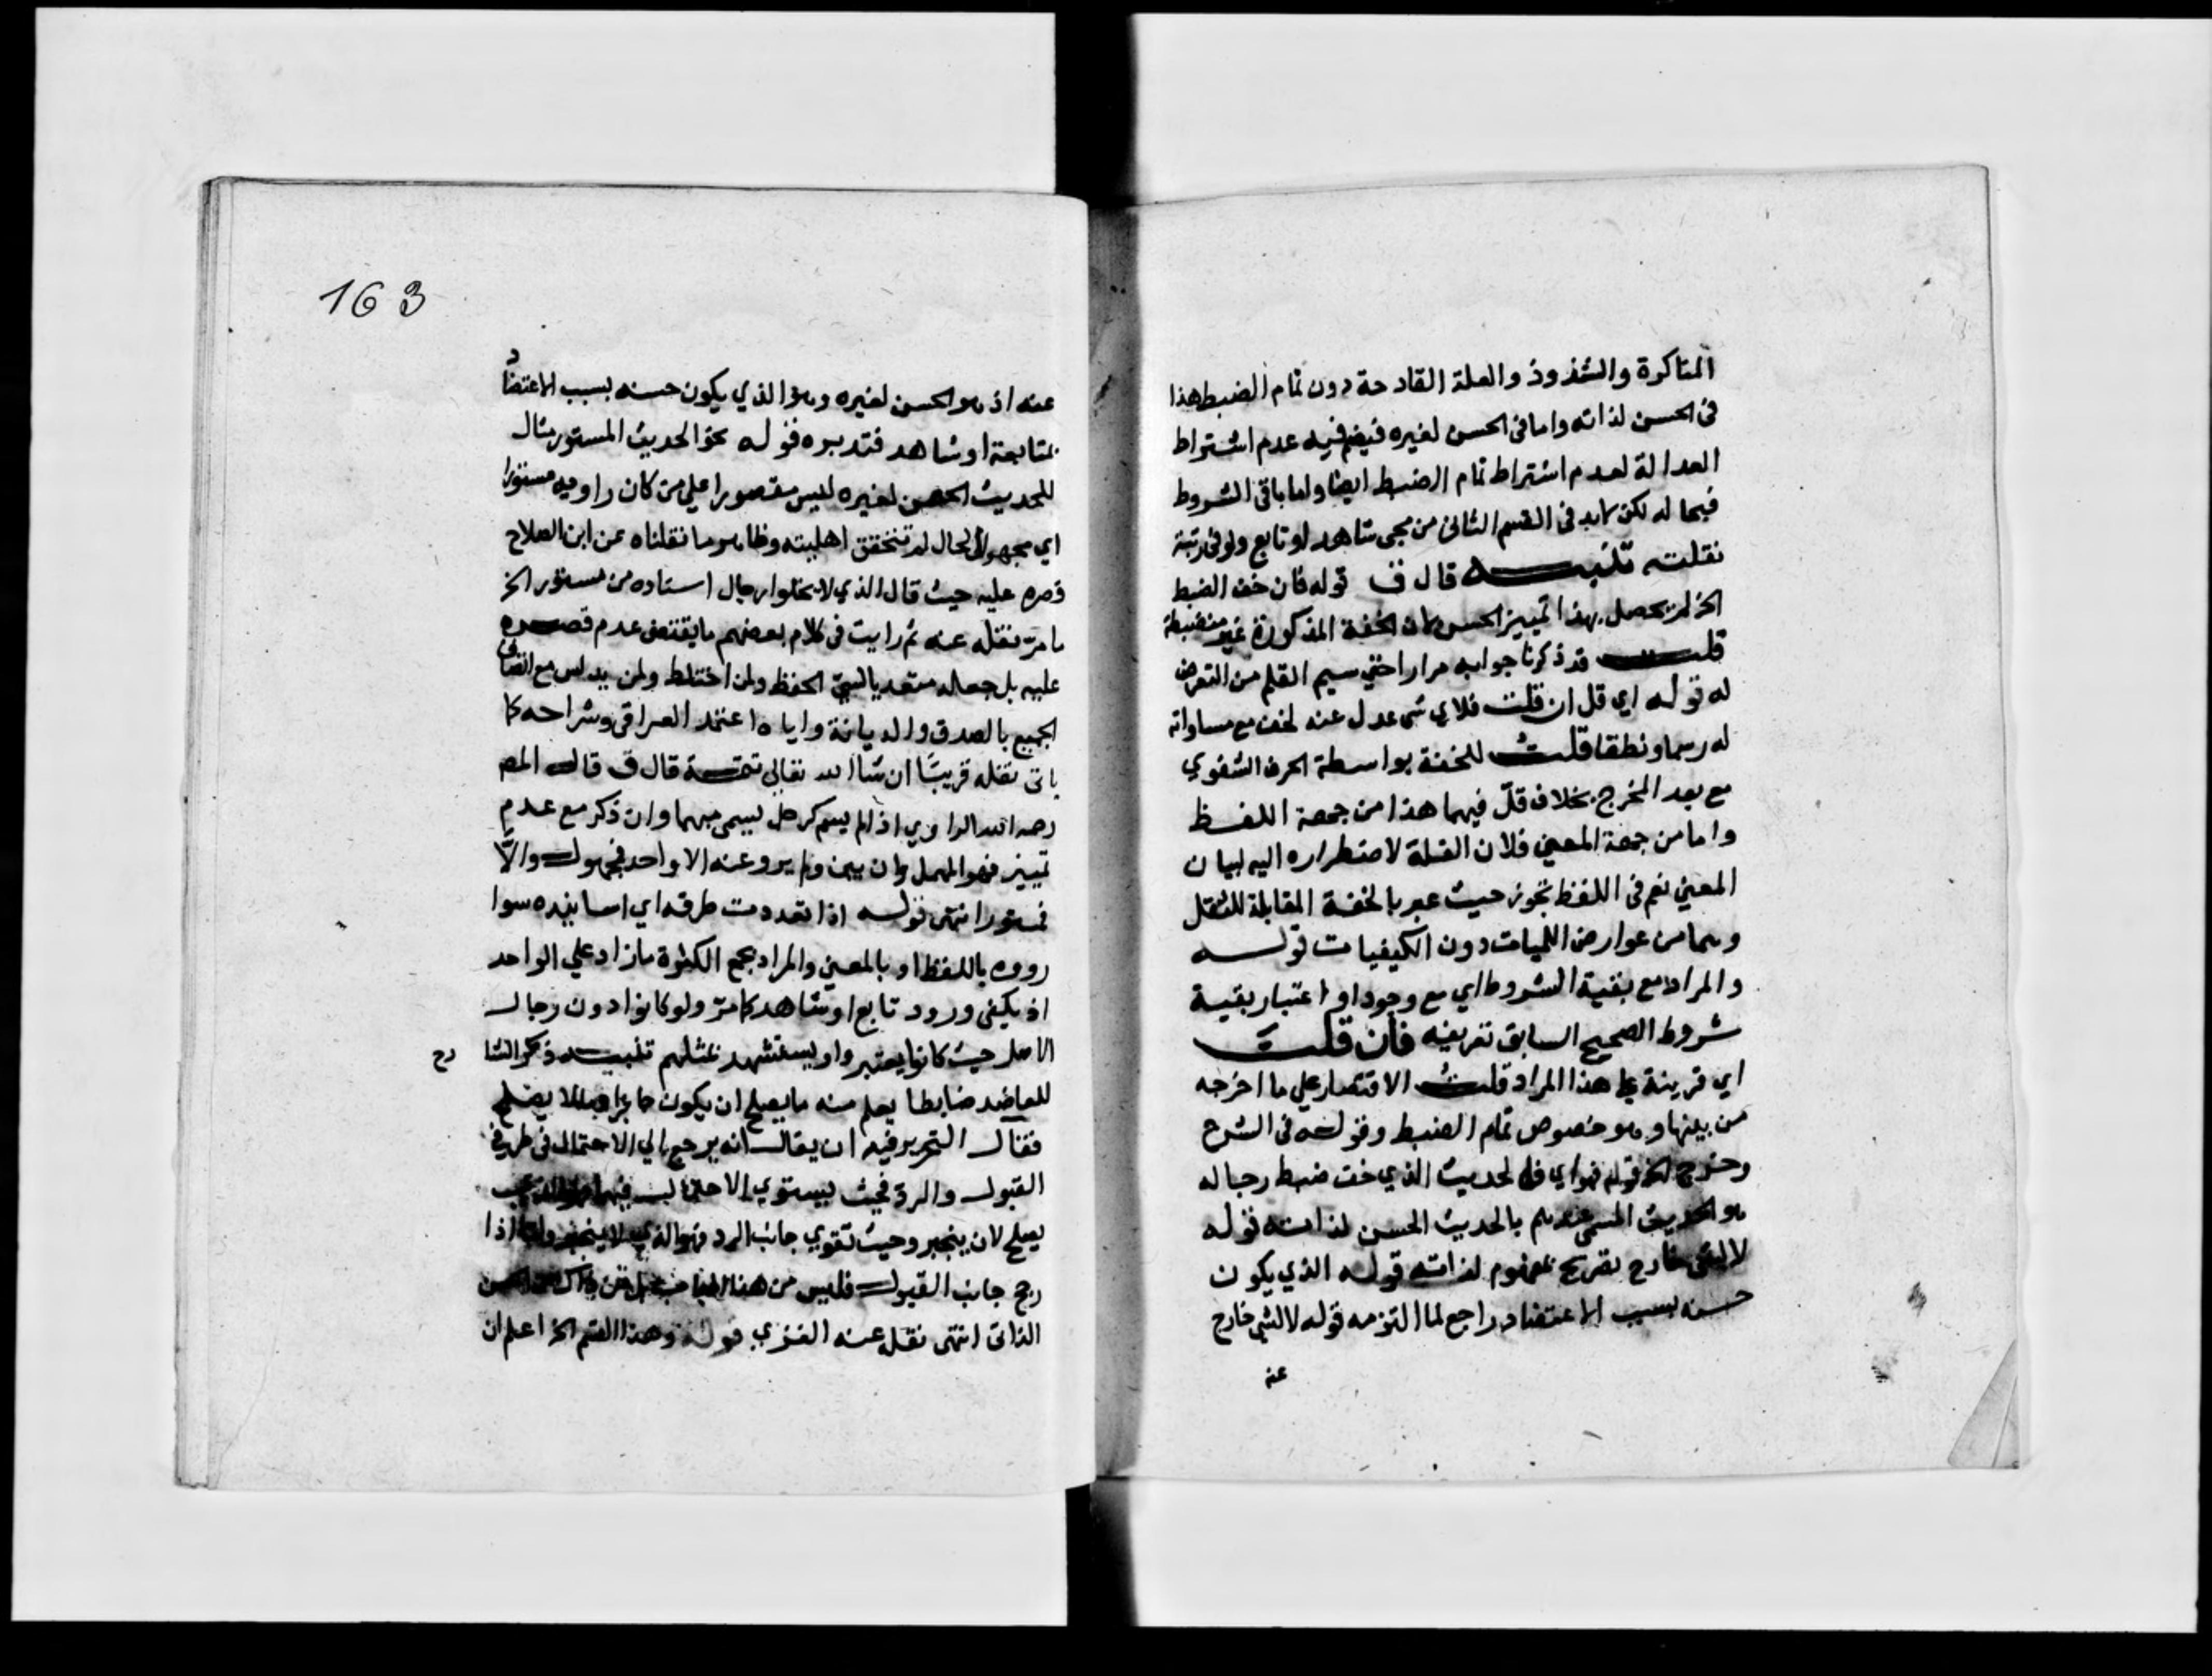 المناكرة والشذوذ والعلة القادحة دون تمام الضبط هذا
في الحسن لذاته واما في الحسن لغيره فيضم فيه عدم اشتراط
العدالة لعدم اشتراط تمام الضبط ايضا واما باقي الشروط
فبحاله لكن لابد في القسم الثاني من مجي شاهد او تابع ولو في رتبة
نقلته تنبيه قال ق قوله فان خف الضبط
الخ لم يحصل بهذا تمييز الحسن لان الخفة المذكورة غير منضبطة
قلت قد ذكرنا جوابه مرارا حتي سيم القلم من التعرض
له قوله اي قل ان قلت فلاي شي عدل عنه لخف مع مساواته
له رسما ونطقا قلت للخفة بواسطة الحرف الشفوي
مع بعد المخرج بخلاف قلّ فيهما هذا من جهة اللفظ
واما من جهة المعني فلان القلة لاضطراره اليه لبيان
المعني نعم في اللفظ تجوز حيث عبر بالخفة المقابلة للثقل
وهما من عوارض الكميات دون الكيفيات قوله
والمراد مع بقية الشروط اي مع وجود او اعتبار بقية
شروط الصحيح السابق تعريفه فان قلت
اي قرينة علي هذا المراد قلت الاقتصار علي ما اخرجه
من بينها وهو خصوص تمام الضبط وقوله في الشرح
وخرج الخ قوله فهو اي الحديث الذي خف ضبط رجاله
هو الحديث المسمي عندهم بالحديث الحسن لذاته قوله
لا لشي خارج تصريح بمفهوم لذاته قوله الذي يكون
حسنه بسبب الاعتضاد راجع لما التزمه قوله لا لشي خارج
عنه
163
عنه اذ هو الحسن لغيره وهو الذي يكون حسنه بسبب الاعتضاد
بمتابعة او شاهد فتدبره قوله نحو الحديث المستور مثال
للحديث الحسن لغيره ليس مقصورا علي من كان راويه مستورا
اي مجهول الحال لم تتحقق اهليته وظاهر ما نقلناه عن ابن الصلاح
قصره عليه حيث قال الذي لا يخلوا رجال اسناده من مستور الخ
ما مرّ نقله عنه ثم رايت في كلام بعضهم ما يقتضي عدم قصره
عليه بل جعله متعديا لسيئ الحفظ ولمن اختلط ولمن يدلس مع اتصاف
الجميع بالصدق والديانة واياه اعتمد العراقي وشراحه كما
ياتي نقله قريبًا ان شا الله تعالي تتمة قال ق قال المص
رحمه الله الراوي اذا لم يسم كرجل يسمي مبهما وان ذكر مع عدم
تمييز فهو المهمل وان بين ولم يرو عنه الا واحد فمجهول والّا
فمستور انتهي قوله اذا تعددت طرقه اي اسانيده سوا
رووه باللفظ او بالمعني والمراد بجمع الكثرة ما زاد علي الواحد
اذ يكفي ورود تابع او شاهد كما مرّ ولو كانوا دون رجال
الاصل حيث كانوا يعتبر او يستشهد بمثلهم تنبيه ذكر الشا
رح
للعاضد ضابطا يعلم منه ما يصلح ان يكون جابرا مما لا يصلح
فقال التحرير فيه ان يقال انه يرجع الي الاحتمال في طرفي
القبول والرد فحيث يستوي الاحتمال فيهما فهو الذي
يصلح لان ينجبر وحيث تقوي جانب الرد فهو الذي لا ينجبر واما اذا
رجح جانب القبول فليس من هذا الباب بل ذاك الحسن
الذاتي انتهي نقله عنه الغزي قوله وهذا القسم الخ اعلم ان